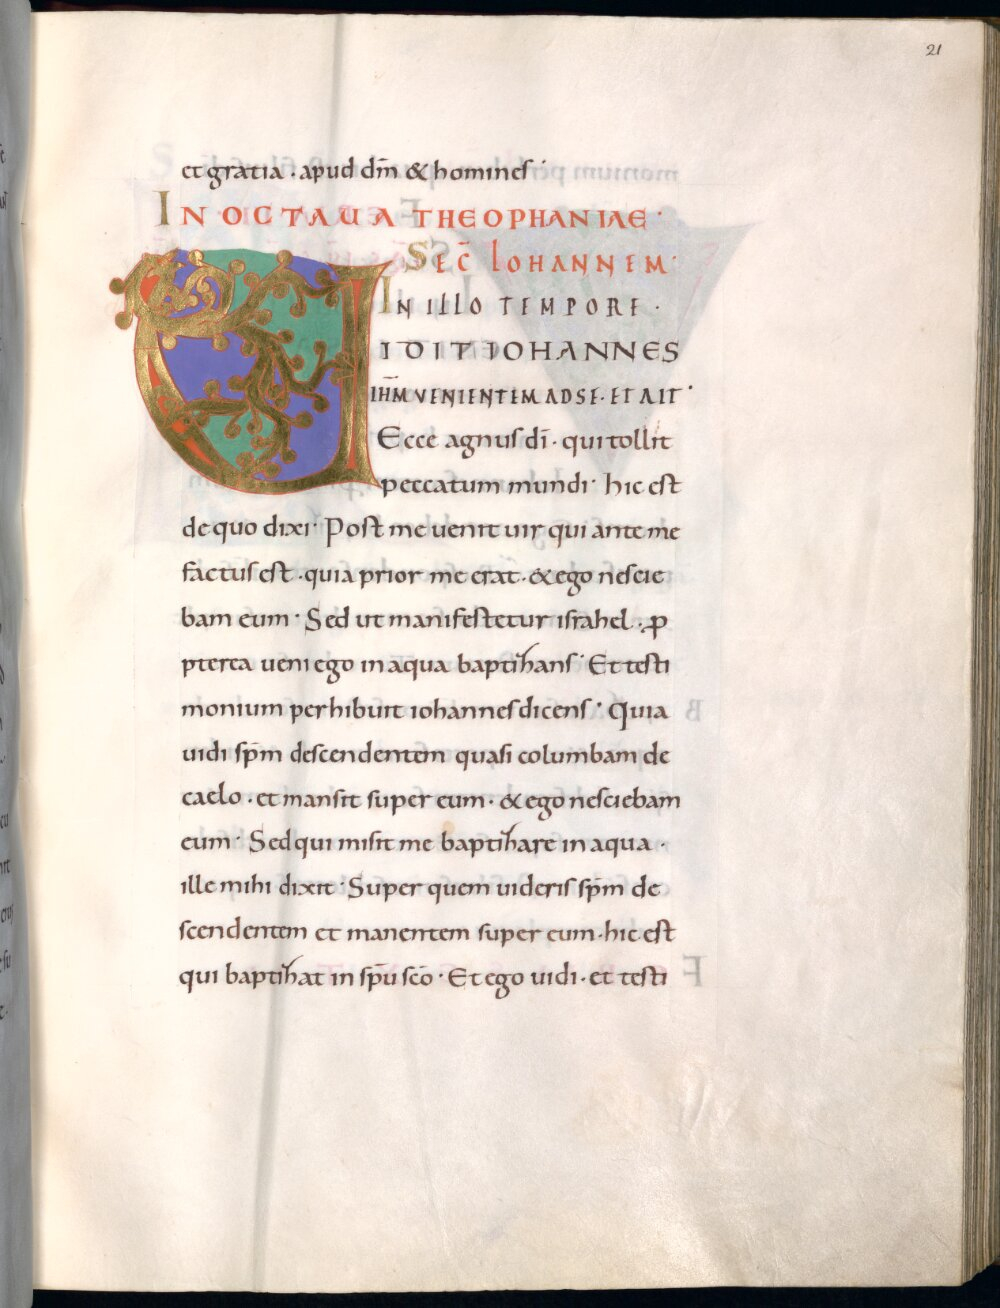 21
et gratia · apud dm̄ & homines
IN OCTAUA THEOPHANIAE ·
SEC̄ IOHANNEM·
IN ILLO TEMPORE ·
UIDIT IOHANNES
IHM̄ VENIENTEM AD SE · ET AIT·
Ecce agnus dī · qui tollit
peccatum mundi · hic est
de quo dixi · Post me uenit uir qui ante me
factus est · quia prior me erat · & ego nescie
bam eum · Sed ut manifestetur israhel · ꝓ
pterea ueni ego in aqua baptizans · Et testi
monium perhibuit iohannes dicens · Quia
uidi spm̄ descendentem quasi columbam de
caelo · et mansit super eum · & ego nesciebam
eum · Sed qui misit me baptizare in aqua ·
ille mihi dixit · Super quem uideris spm̄ de
scendentem et manentem super eum · hic est
qui baptizat in spū scō · Et ego uidi · et testi